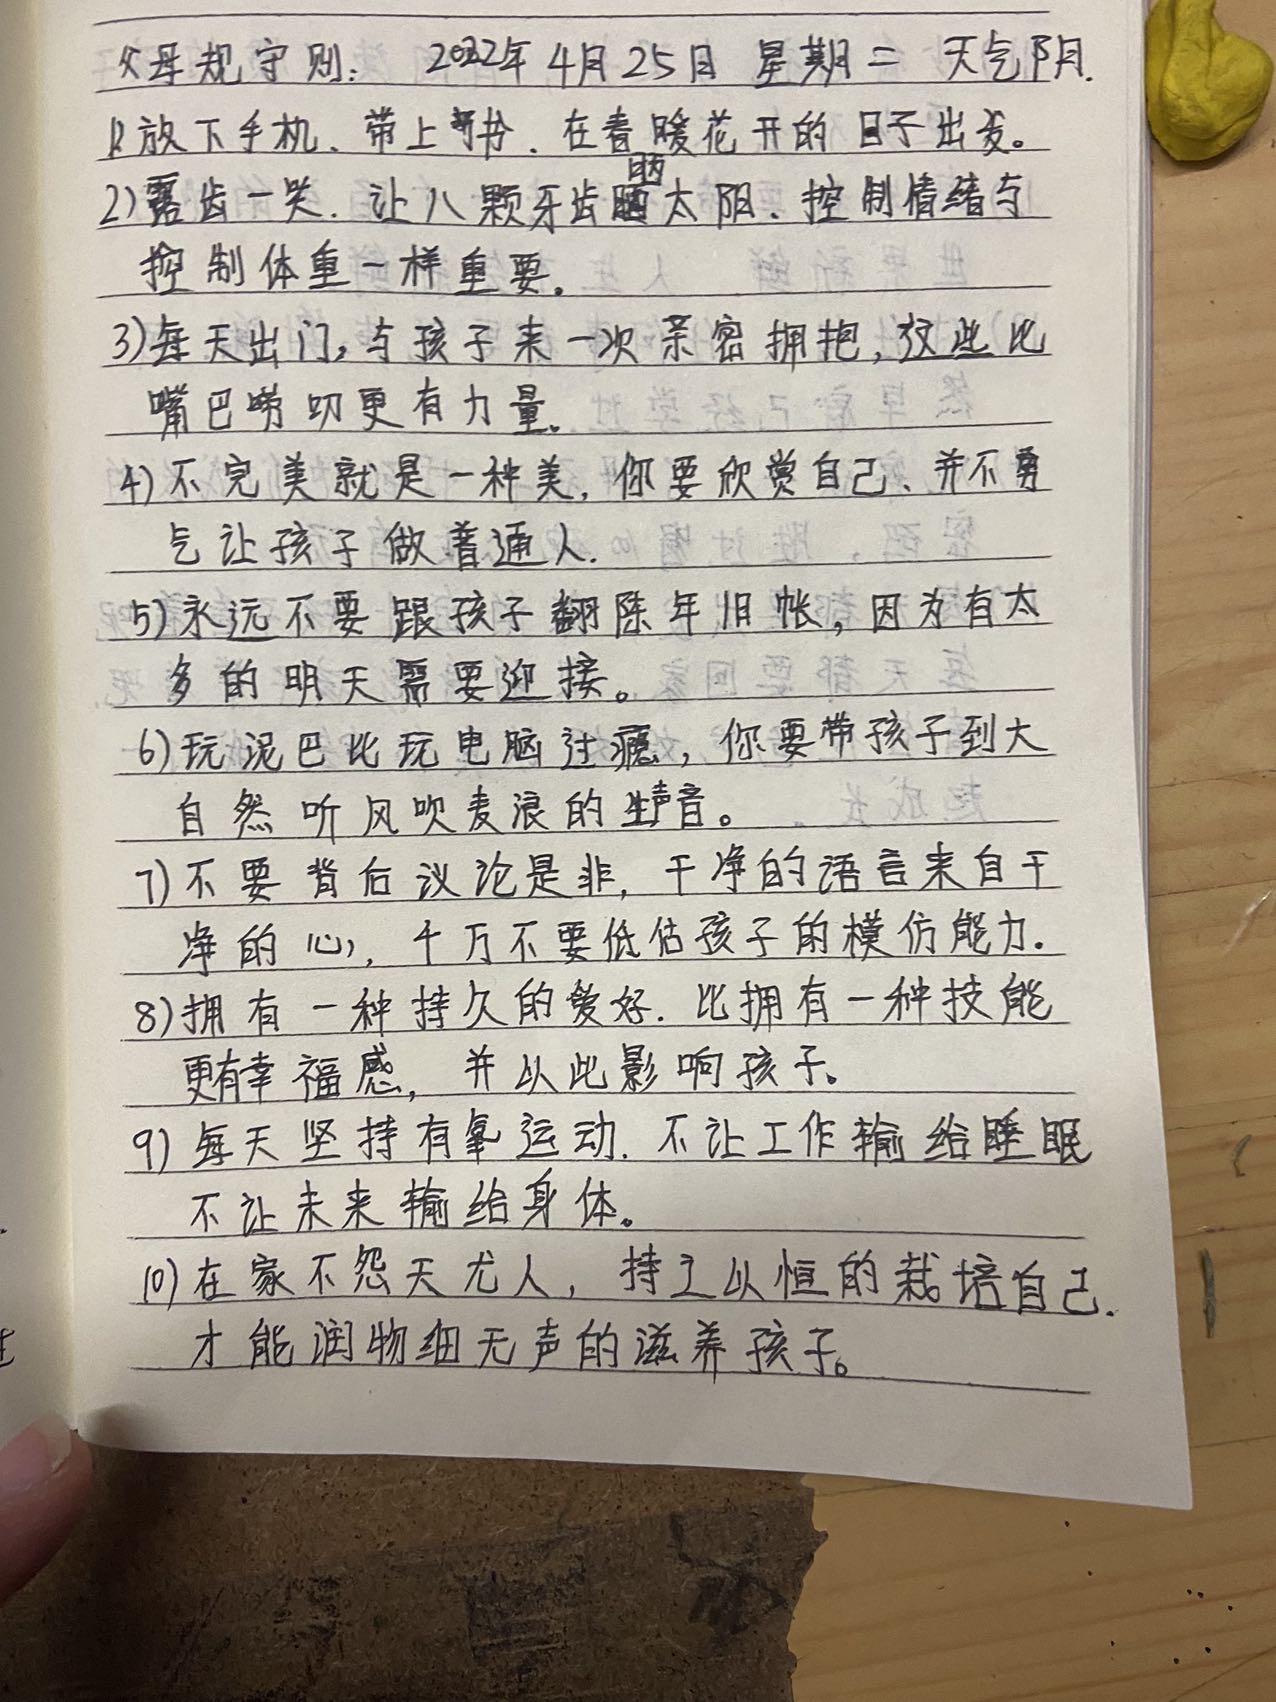 父母规守则: 2022年4月25日 星期二 天气阴.
1)放下手机、带上书、在春暖花开的日子出发。
2)露齿一笑.让八颗牙齿晒太阳、控制情绪与
控制体重一样重要。
3)每天出门,与孩子来一次亲密拥抱,这些比
嘴巴唠叨更有力量。
4)不完美就是一种美,你要欣赏自己、并不勇
气让孩子做普通人.
5)永远不要跟孩子翻陈年旧帐,因为有太
多的明天需要迎接。
6)玩泥巴比玩电脑过瘾,你要带孩子到大
自然听风吹麦浪的声音。
7)不要背后议论是非,干净的语言来自干
净的心,千万不要低估孩子的模仿能力.
8)拥有一种持久的爱好.比拥有一种技能
更有幸福感,并以此影响孩子。
9)每天坚持有氧运动.不让工作输给睡眠
不让未来输给身体。
10)在家不怨天尤人,持之以恒的栽培自己.
才能润物细无声的滋养孩子。